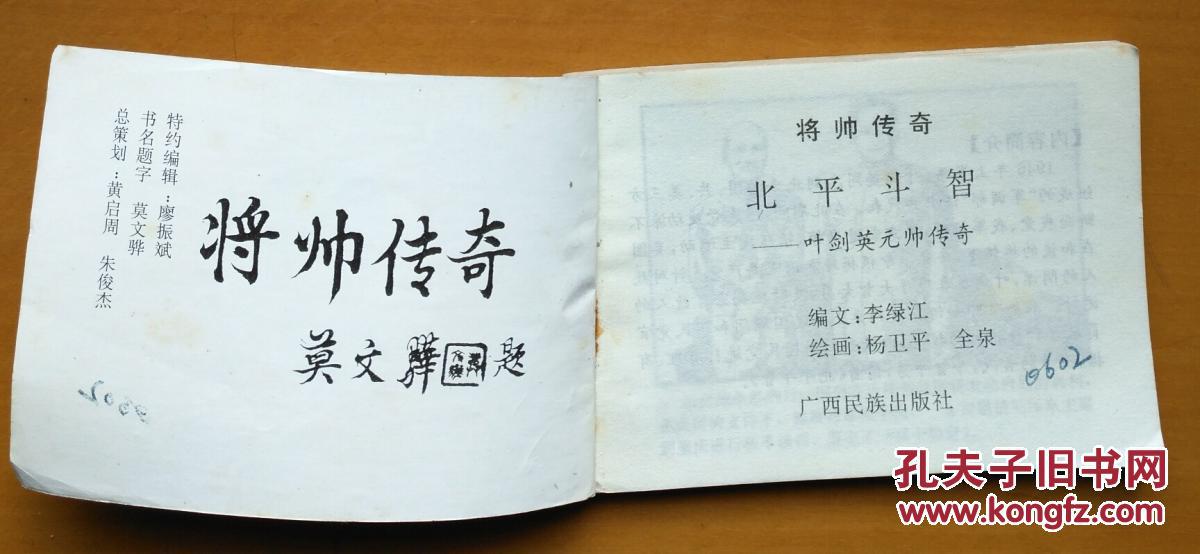 特约编辑：廖振斌
书名题字 莫文骅
总策划：黄启周 朱俊杰
将帅传奇
莫文骅题
0602
将帅传奇
北平斗智
——叶剑英元帅传奇
编文：李绿江
绘画：杨卫平 全泉
0602
广西民族出版社
【内容简介】
孔夫子旧书网
www.kongfz.com